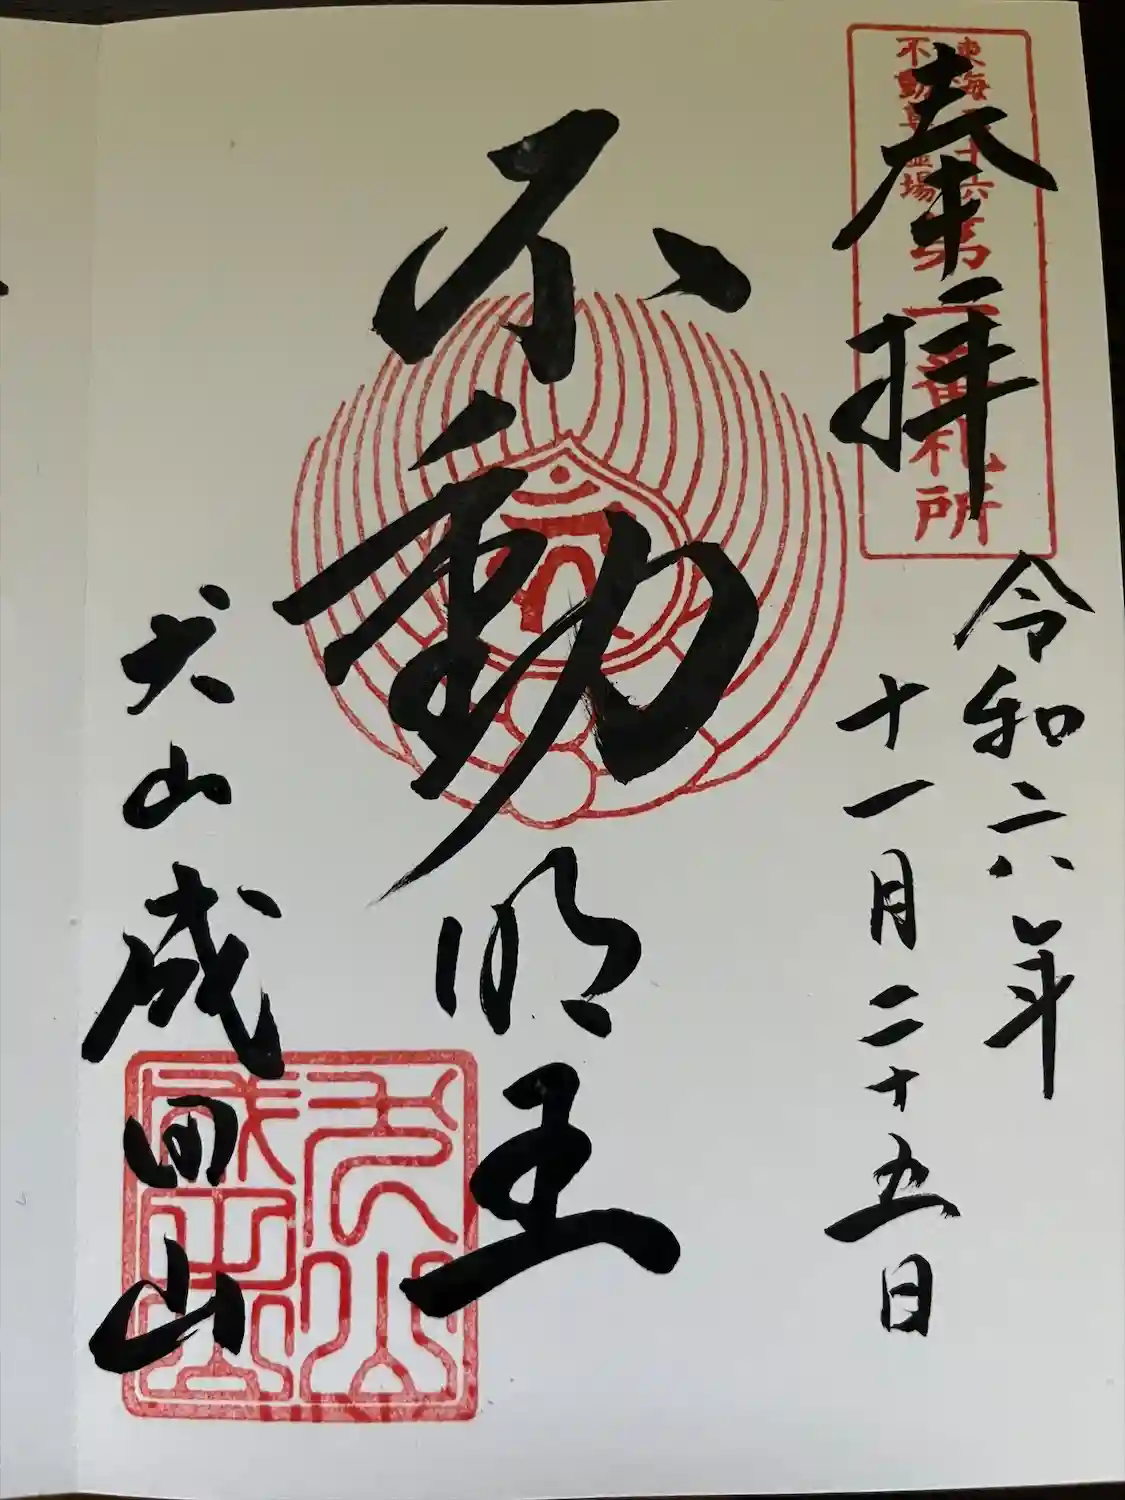 奉拝
東海三十六
不動尊霊場
第一番札所
令和六年
十一月二十五日
不動明王
犬山成田山